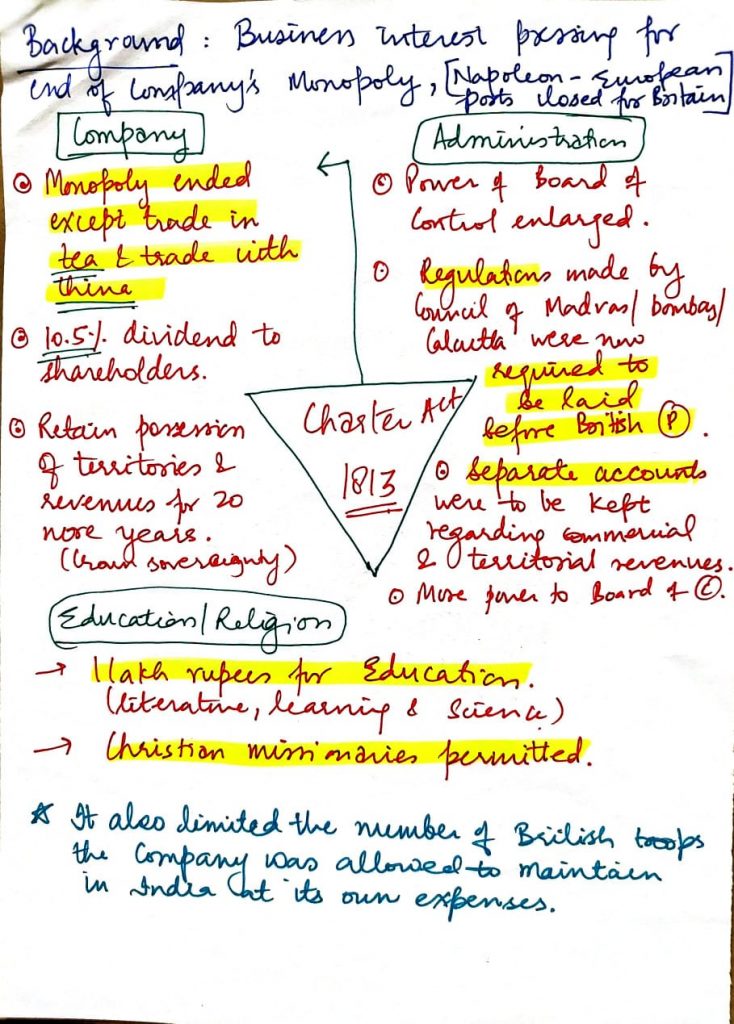 Background : Business interest pressing for
end of Company's Monopoly, [Napoleon - European
ports closed for Britain]
Company
⊙ Monopoly ended
except trade in
tea & trade with
China
⊙ 10.5% dividend to
shareholders.
⊙ Retain possession
of territories &
revenues for 20
more years.
(Crown sovereignty)
Charter Act
1813
Administration
⊙ Power of Board of
Control enlarged.
⊙ Regulations made by
Council of Madras/bombay/
Calcutta were now
required to
be laid
before British Ⓟ.
⊙ Separate accounts
were to be kept
regarding commercial
& territorial revenues.
⊙ More power to Board of Ⓒ.
Education/Religion
→ 1 lakh rupees for Education.
(literature, learning & Science)
→ Christian missionaries permitted.
☆ It also limited the number of British troops
the Company was allowed to maintain
in India at its own expenses.